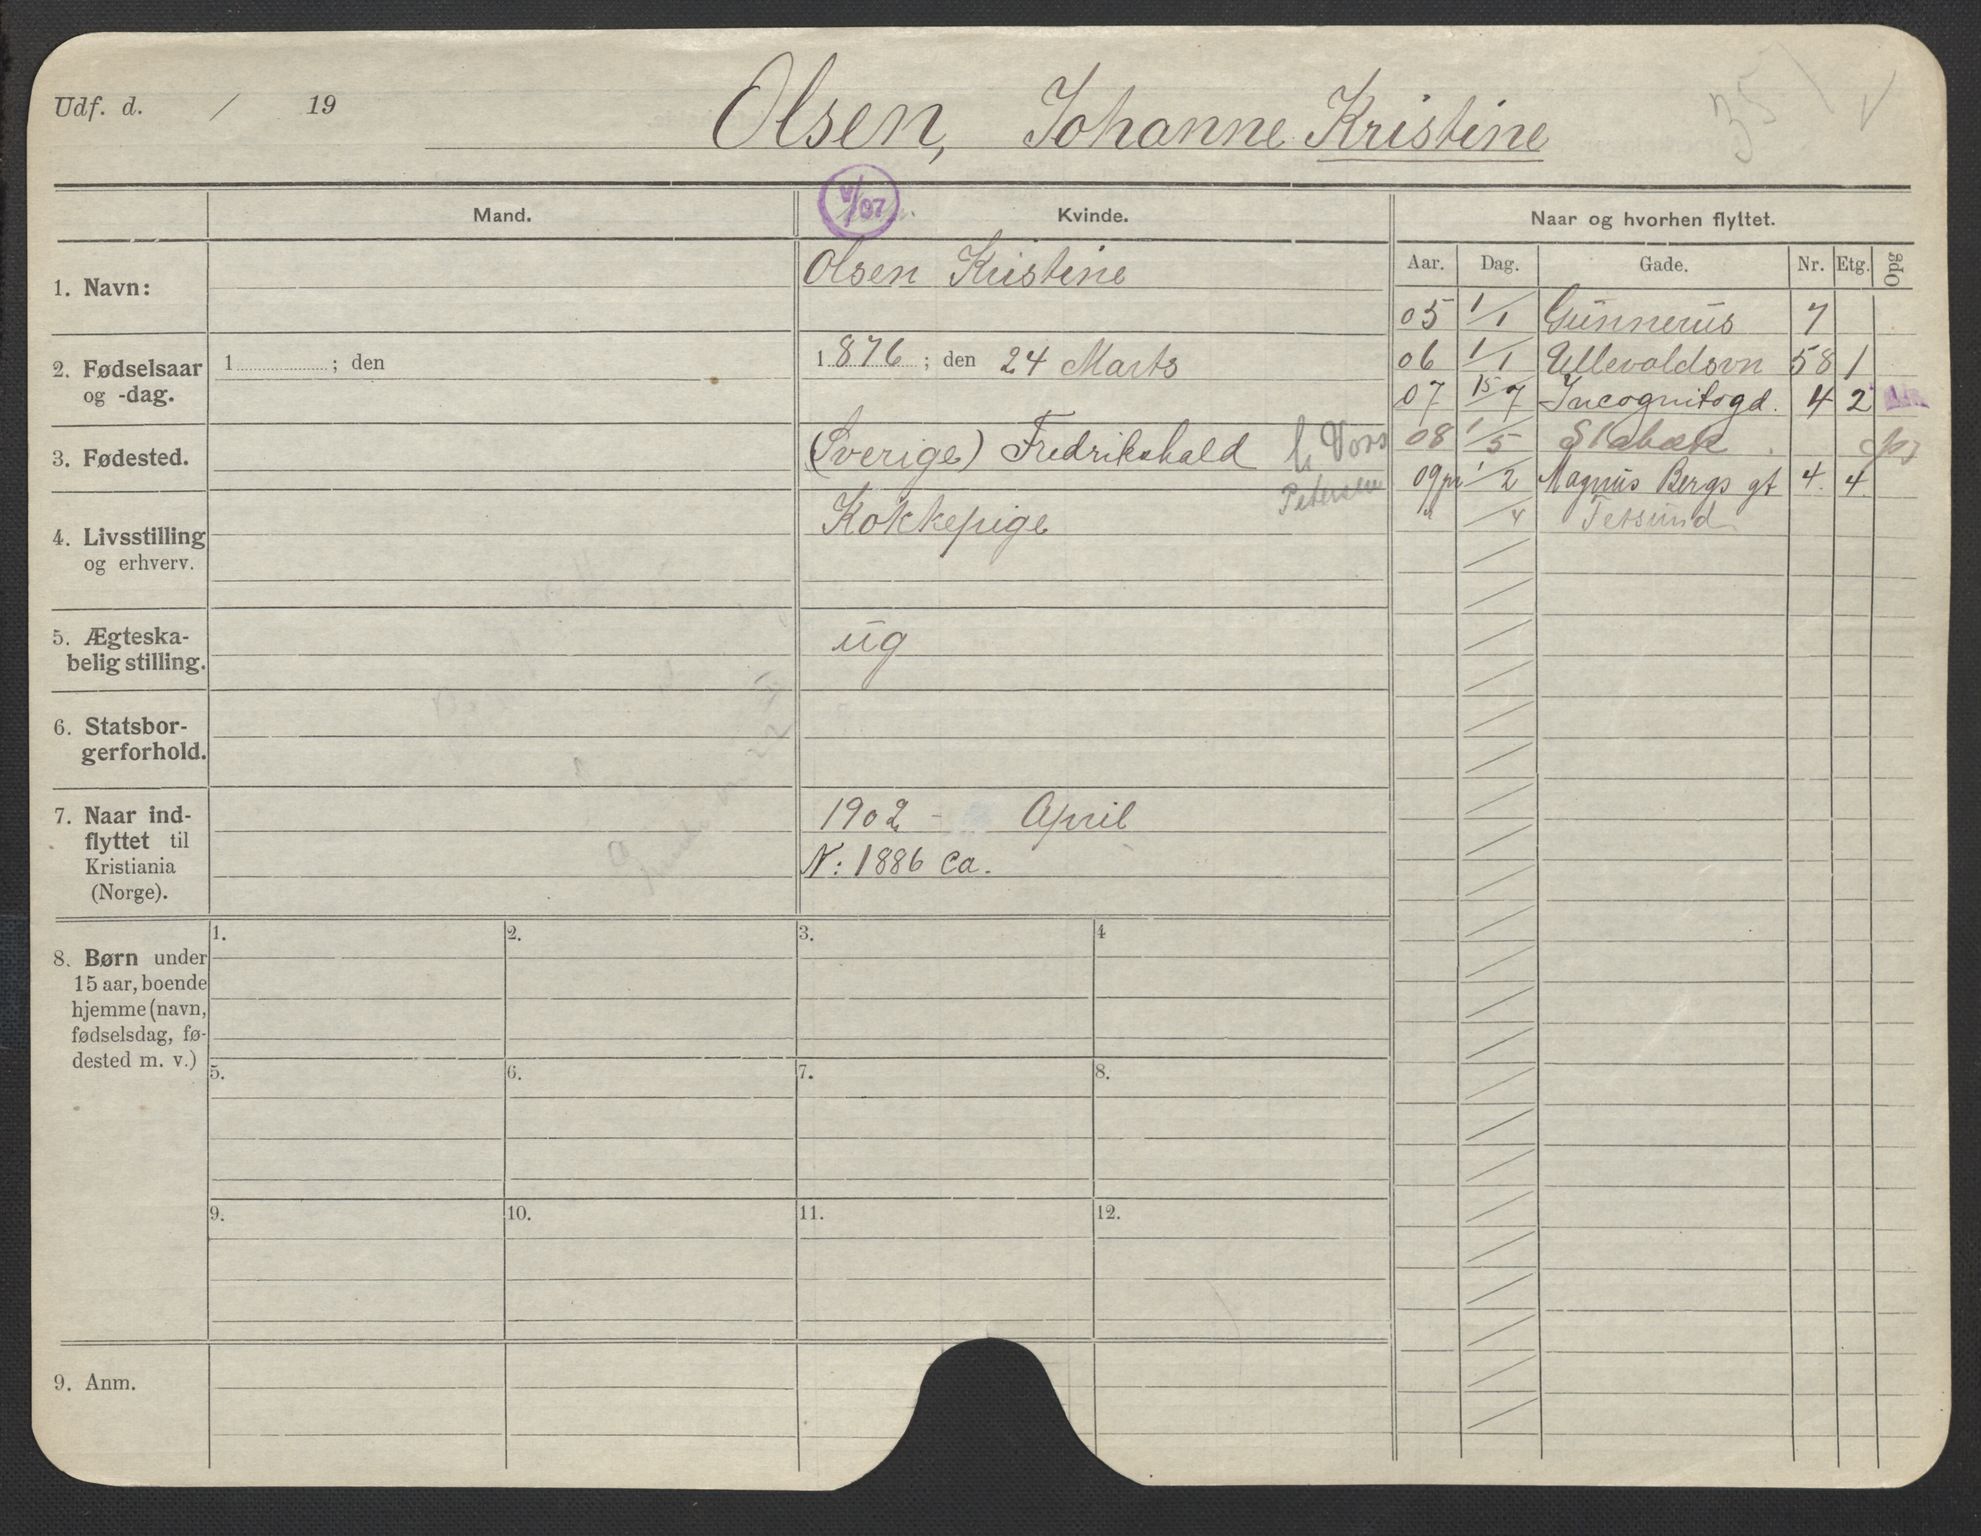 Udf. d. / 19
Olsen, Johanne Kristine
35
V/07
Mand.
Kvinde.
Naar og hvorhen flyttet.
Aar. Dag. Gade. Nr. Etg. Opg
1. Navn:
Olsen Kristine
05 1/1 Gunnerus 7
2. Fødselsaar
og -dag.
1 ; den
1876 ; den 24 Marts
06 1/1 Ullevoldsvn 58 1
07 15/7 Incognitogd. 4 2
3. Fødested.
(Sverige) Fredrikshald
h Vors
Petersen
08 1/5 Stabæk
09 1/2 Magnus Bergs gt 4. 4.
/4 Fetsund
4. Livsstilling
og erhverv.
Kokkepige
5. Ægteska-
belig stilling.
ug
6. Statsbor-
gerforhold.
7. Naar ind-
flyttet til
Kristiania
(Norge).
1902 - April
N: 1886 ca.
8. Børn under
15 aar, boende
hjemme (navn,
fødselsdag, fø-
dested m. v.)
1. 2. 3. 4
5. 6. 7. 8.
9. 10. 11. 12.
9. Anm.